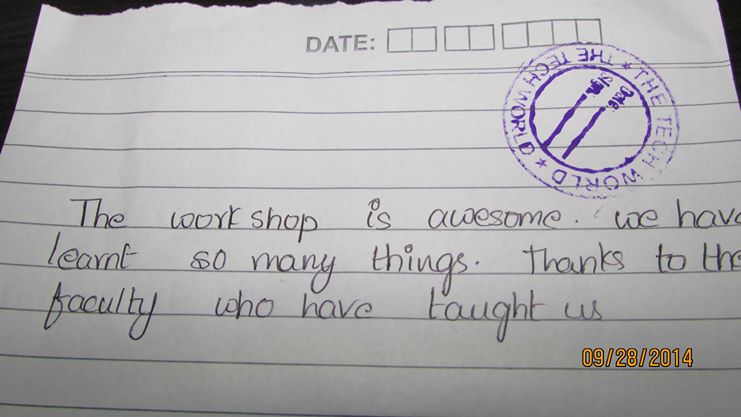 DATE:
THE TECH WORLD ★ THE TECH WORLD ★
Date:
Sign:
The workshop is awesome. we have
learnt so many things. Thanks to the
faculty who have taught us
09/28/2014